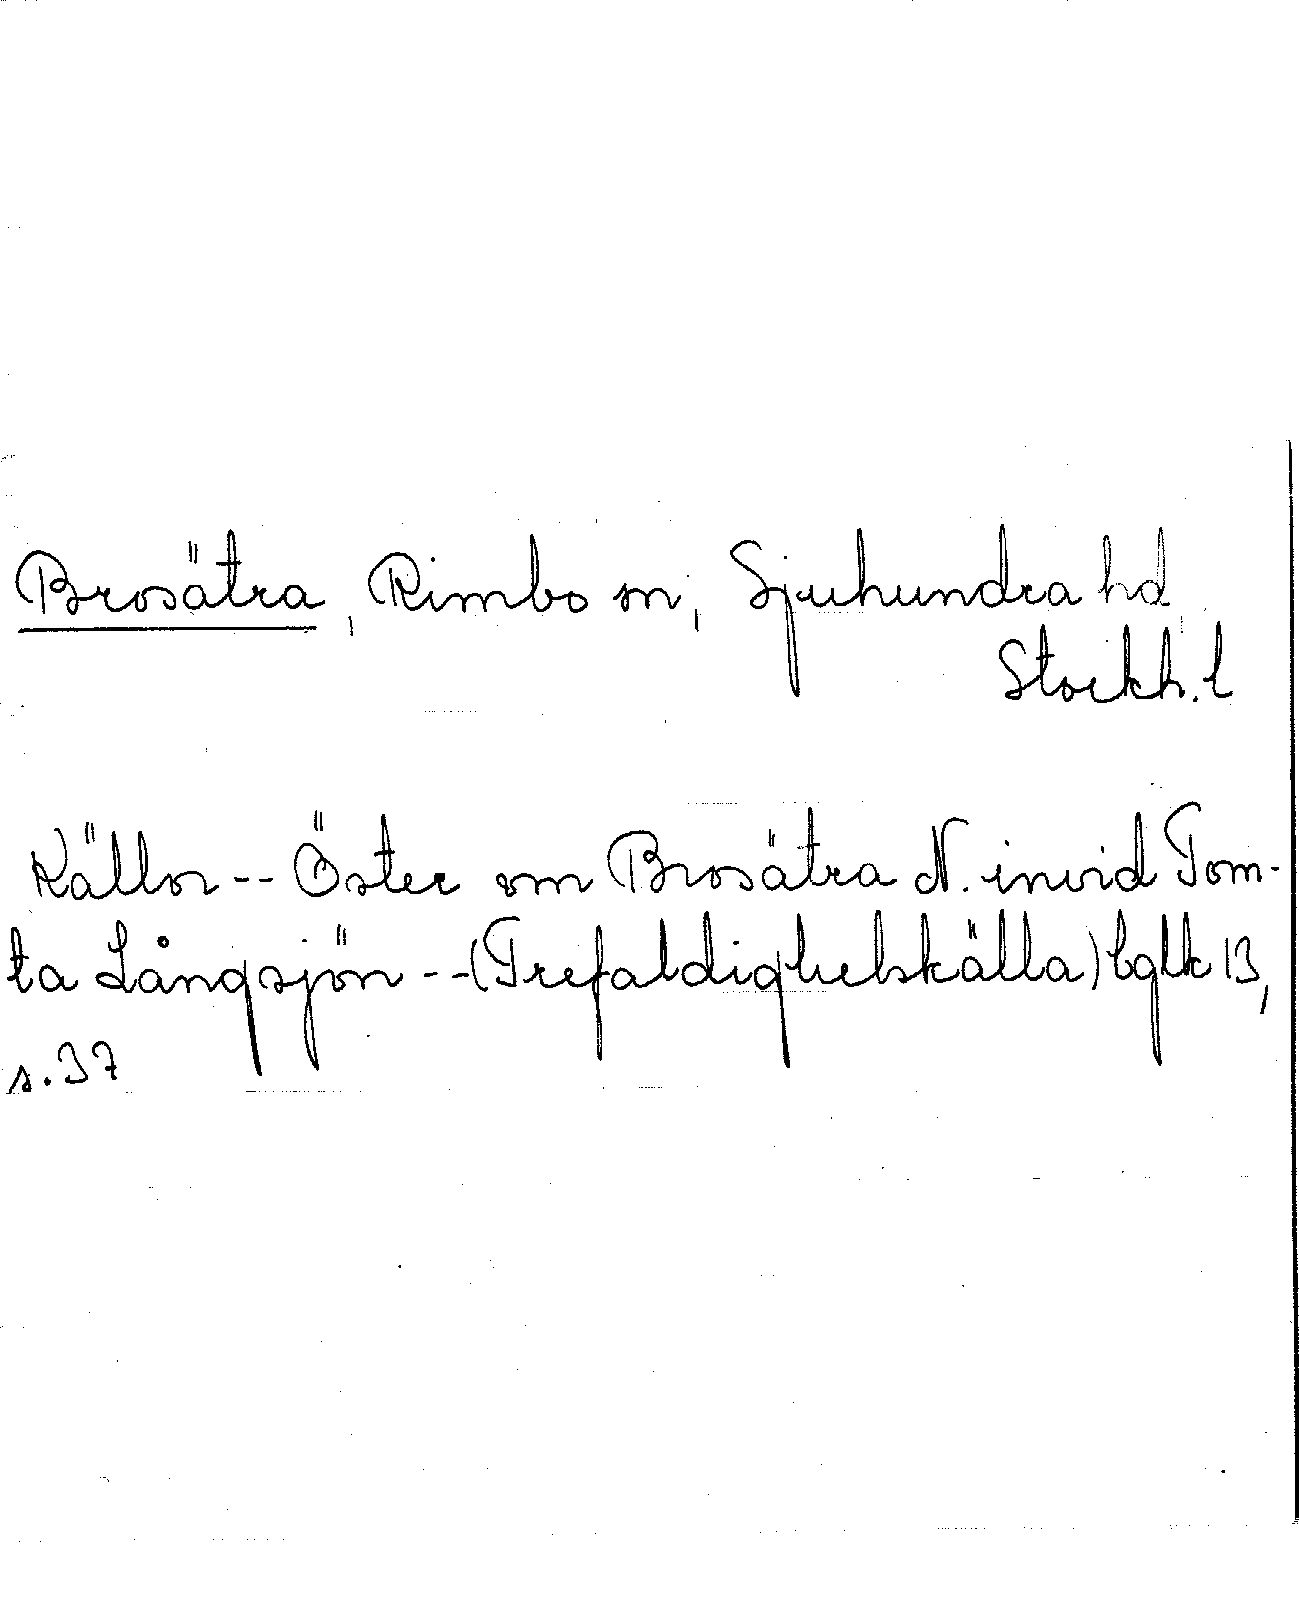 Brosätra, Rimbo sn, Sjuhundra hd,
Stockh. l
Källor -- Öster om Brosätra N. invid Tom-
ta Långsjön -- (Trefaldighetskälla) bglk 13,
s. 37